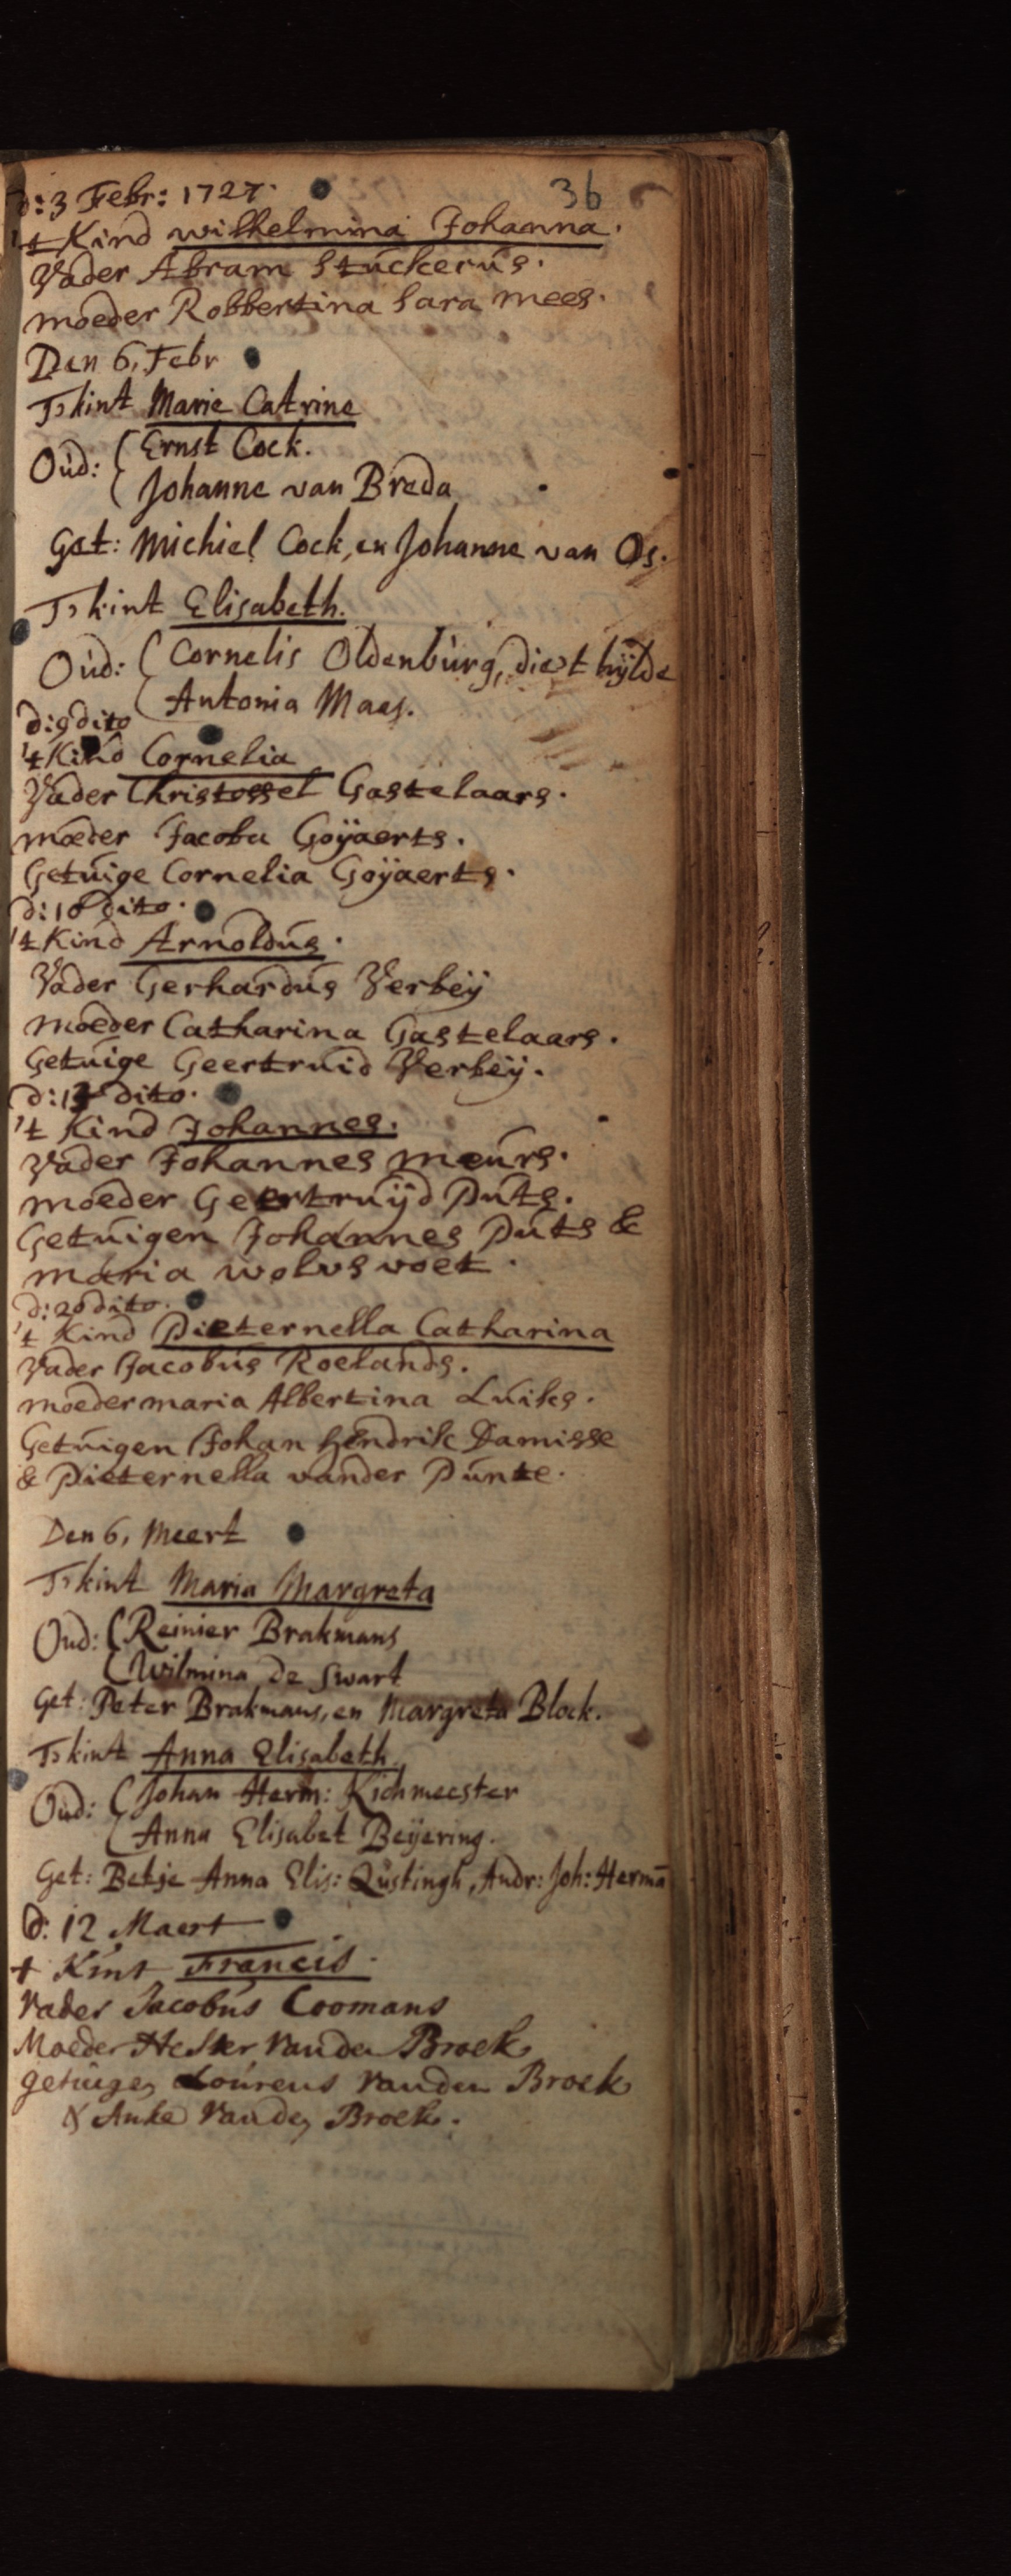 36
d: 3 Febr: 1727.
't Kind wilhelmina Johanna.
Vader Abram Stuckerús.
moeder Robbertina Sara mees.
Den 6, Febr
T's kint Marie Catrine
Oúd: (Ernst Cock.
(Johanne van Breda
Get: Michiel Cock, en Johanne van Os.
T's kint Elisabeth.
Oúd: (Cornelis Oldenbúrg, die 't hijlde
(Antonia Maas.
d: 9 dito
't Kind Cornelia
Vader Christoffel Gastelaars.
moeder Jacoba Goÿaerts.
Getúige Cornelia Goÿaerts.
d: 10 dito.
't Kind Arnoldús.
Vader Gerhardús Verbeÿ
moeder Catharina Gastelaars.
Getúige Geertruid Verbeÿ.
d: dito.
't Kind Johannes.
Vader Johannes meúrs.
moeder Geertruÿd Púts.
Getúigen Johannes Púts &
maria wolvsvoet.
d: 20 dito.
't Kind Pieternella Catharina
Vader Jacobús Roelands.
moeder maria Albertina Lúiks.
Getúigen Johan Hendrik Damisse
& Pieternella vander Púnte.
Den 6, Meert
T's kint Maria Margreta
Oud: (Reinier Brakmans
(Wilmina de Swart
Get: Peter Brakmans, en Margreta Block.
T's kint Anna Elisabeth.
Oúd: (Johan Herm: Kichmeester
(Anna Elisabet Beÿering.
Get: Betje Anna Elis: Qústingh, Andr: Joh: Hermã
d: 12 Maert
t Kint Francis.
Vader Jacobús Coomans
Moeder Hester Vanden Broek
getúigen Loúrens Vanden Broek
& Anke Vanden Broek.